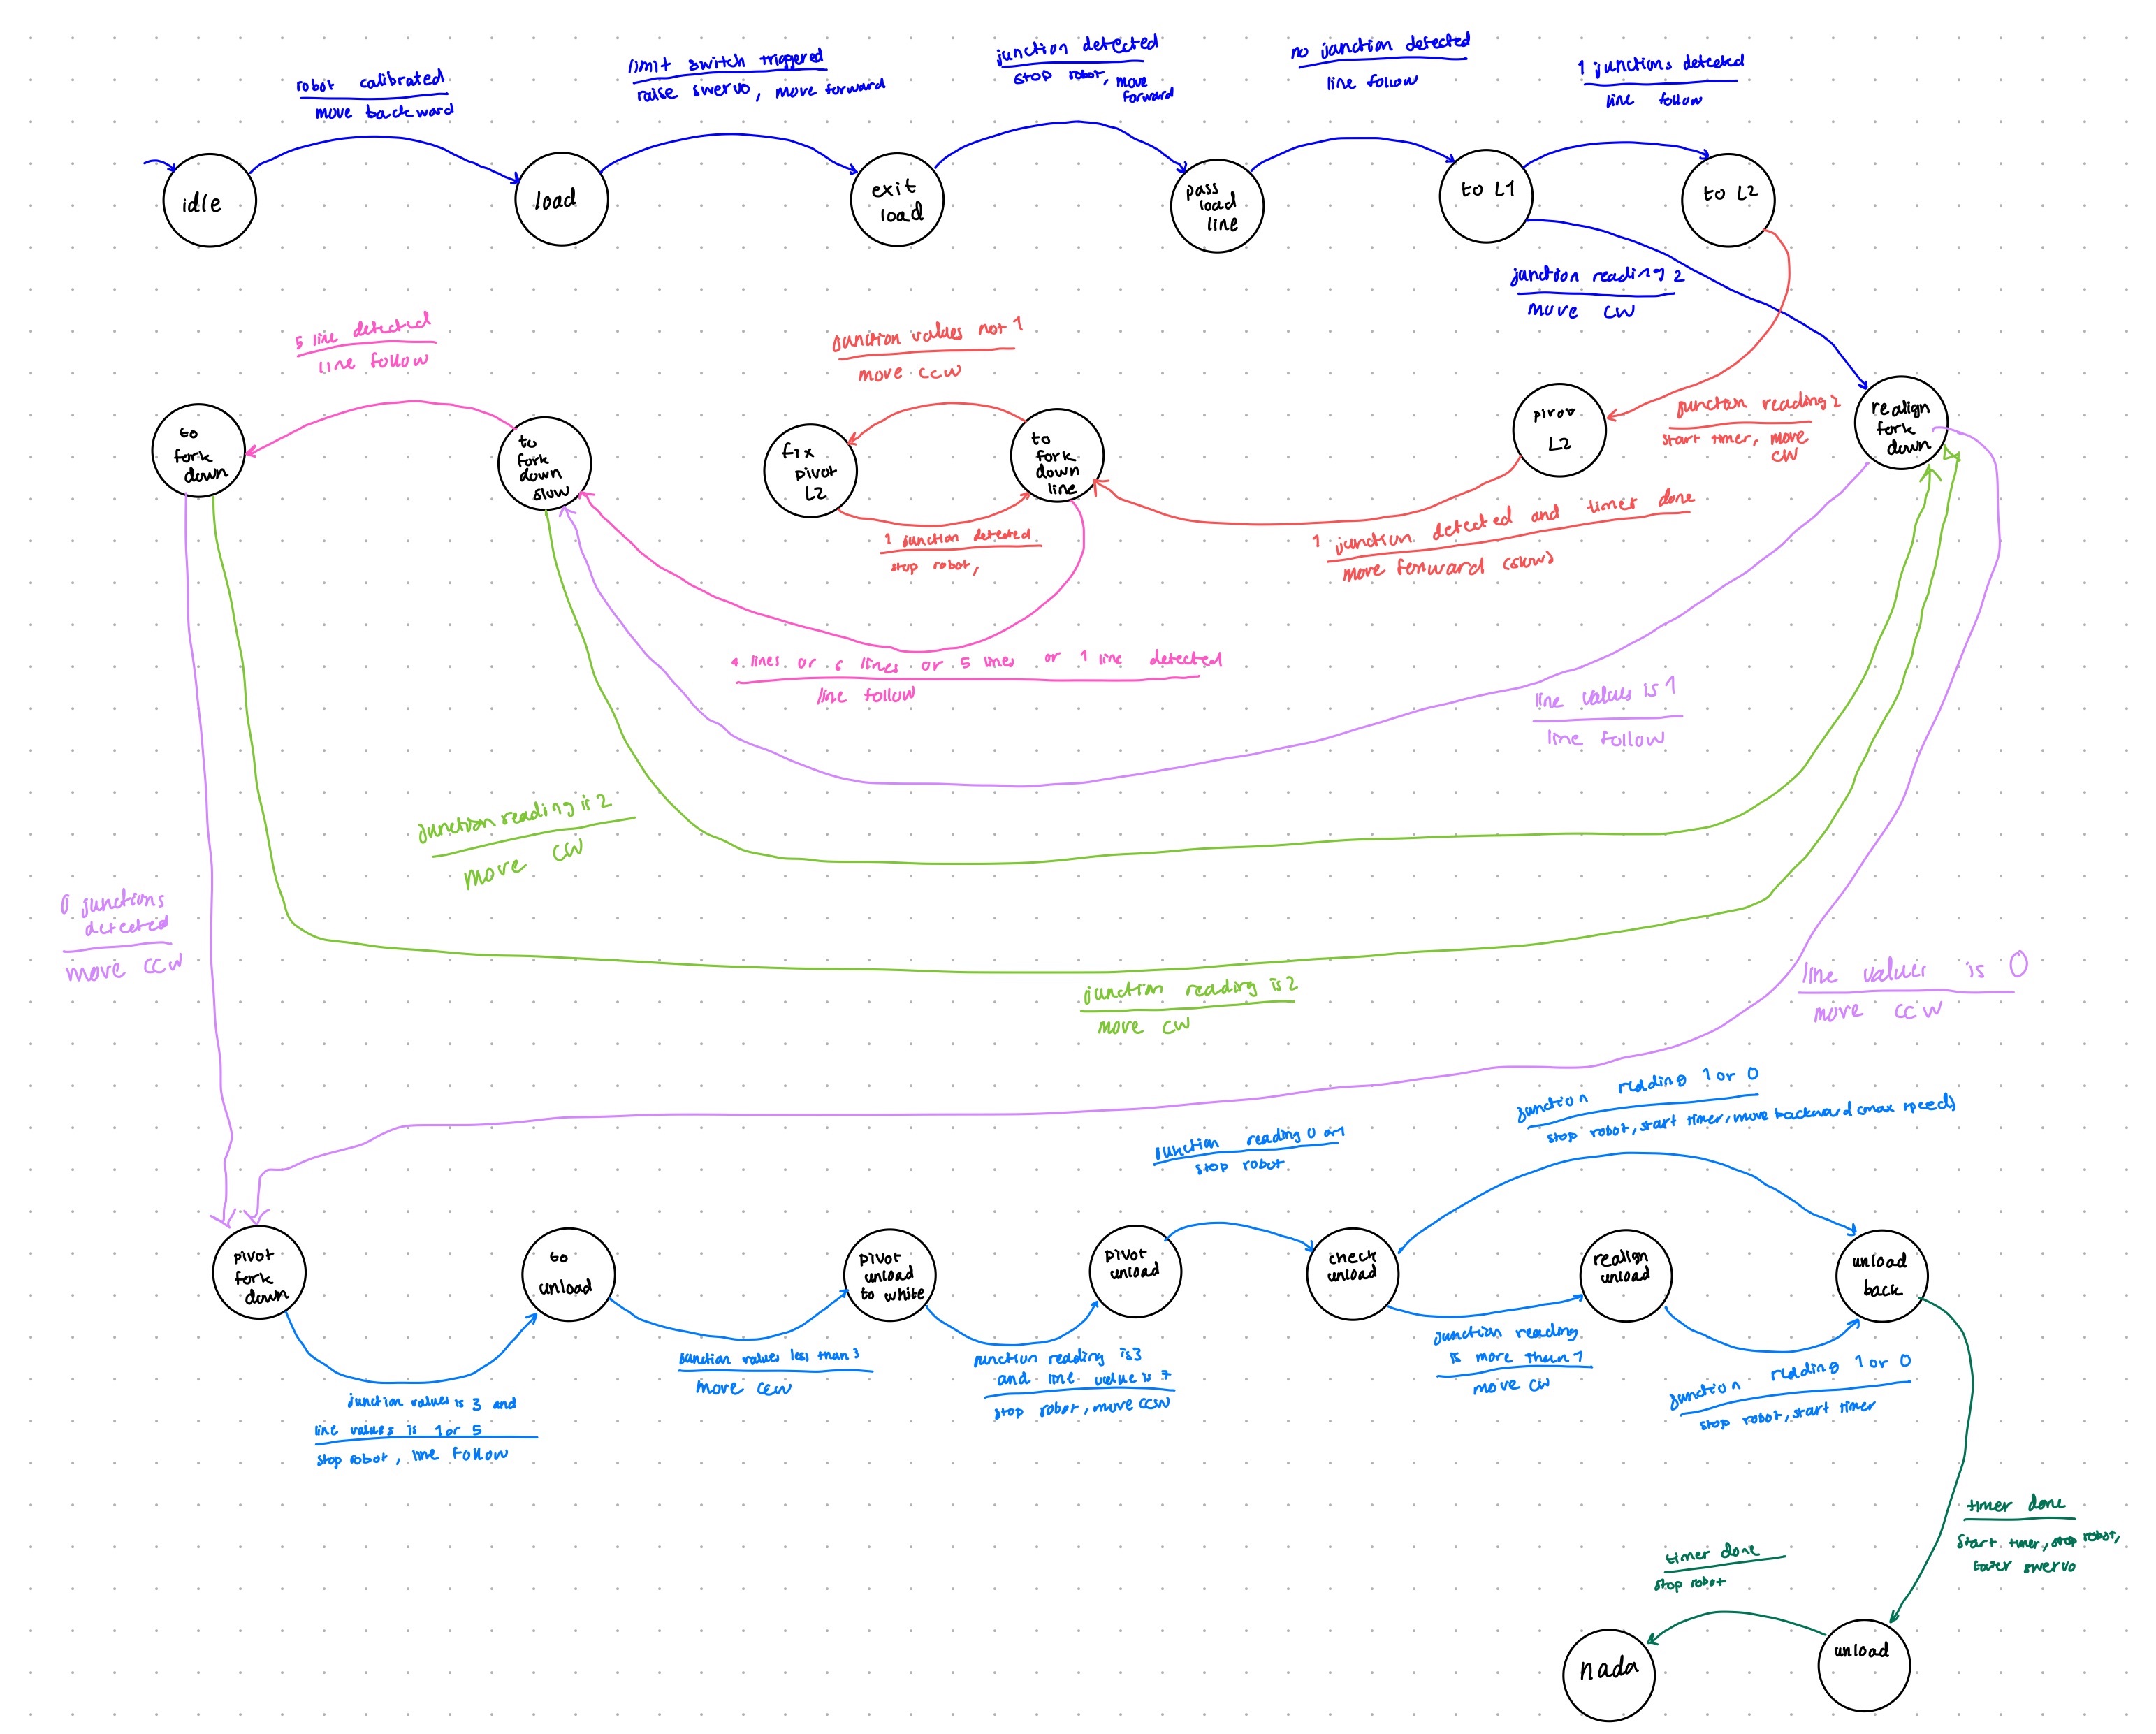 robot calibrated
move backward
limit switch triggered
raise swervo, move forward
junction detected
stop robot, move
forward
no junction detected
line follow
1 junctions detected
line follow
idle
load
exit
load
pass
load
line
to L1
to L2
junction reading 2
move CW
5 line detected
line follow
junction values not 1
move CCW
to
fork
down
to
fork
down
slow
fix
pivot
L2
to
fork
down
line
pivot
L2
junction reading 2
start timer, move
CW
realign
fork
down
1 junction detected
stop robot,
1 junction detected and timer done
move forward (slow)
4 lines or 6 lines or 5 lines or 1 line detected
line follow
line values is 1
line follow
junction reading is 2
move CW
0 junctions
detected
move CCW
junction reading is 2
move CW
line values is 0
move CCW
junction reading 1 or 0
stop robot, start timer, move backward (max speed)
junction reading 0 or 1
stop robot
pivot
fork
down
to
unload
pivot
unload
to white
pivot
unload
check
unload
realign
unload
unload
back
junction values is 3 and
line values is 1 or 5
stop robot, line follow
junction values less than 3
move CCW
junction reading is 3
and line value is 7
stop robot, move CCW
junction reading
is more than 1
move CW
junction reading 1 or 0
stop robot, start timer
timer done
start timer, stop robot,
lower swervo
timer done
stop robot
nada
unload